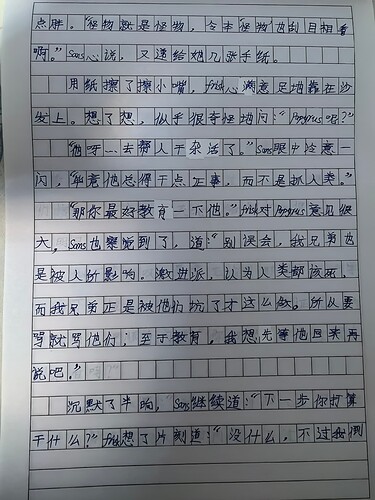 点胖。“怪物就是怪物，令本‘怪物’也刮目相看
啊。”Sans心说，又递给她几张手纸。
用纸擦了擦小嘴，frisk心满意足地靠在沙
发上。想了想，似乎很奇怪地问：“Papyrus呢？”
“他呀……去帮人干杂活了。”Sans眼中注意一
闪，“毕竟他总得干点正事，而不是抓人类。”
“那你最好教育一下他。”frisk对Papyrus意见很
大，Sans也察觉到了，道：“别误会，我兄弟也
是被人所影响。激进派，认为人类都该死，
而我兄弟正是被他们坑了才这么做。所以要
骂就骂他们；至于教育，我想先等他回来再
说吧。”
沉默了半响，Sans继续道：“下一步你打算
干什么？”frisk想了片刻道：“没什么，不过我倒